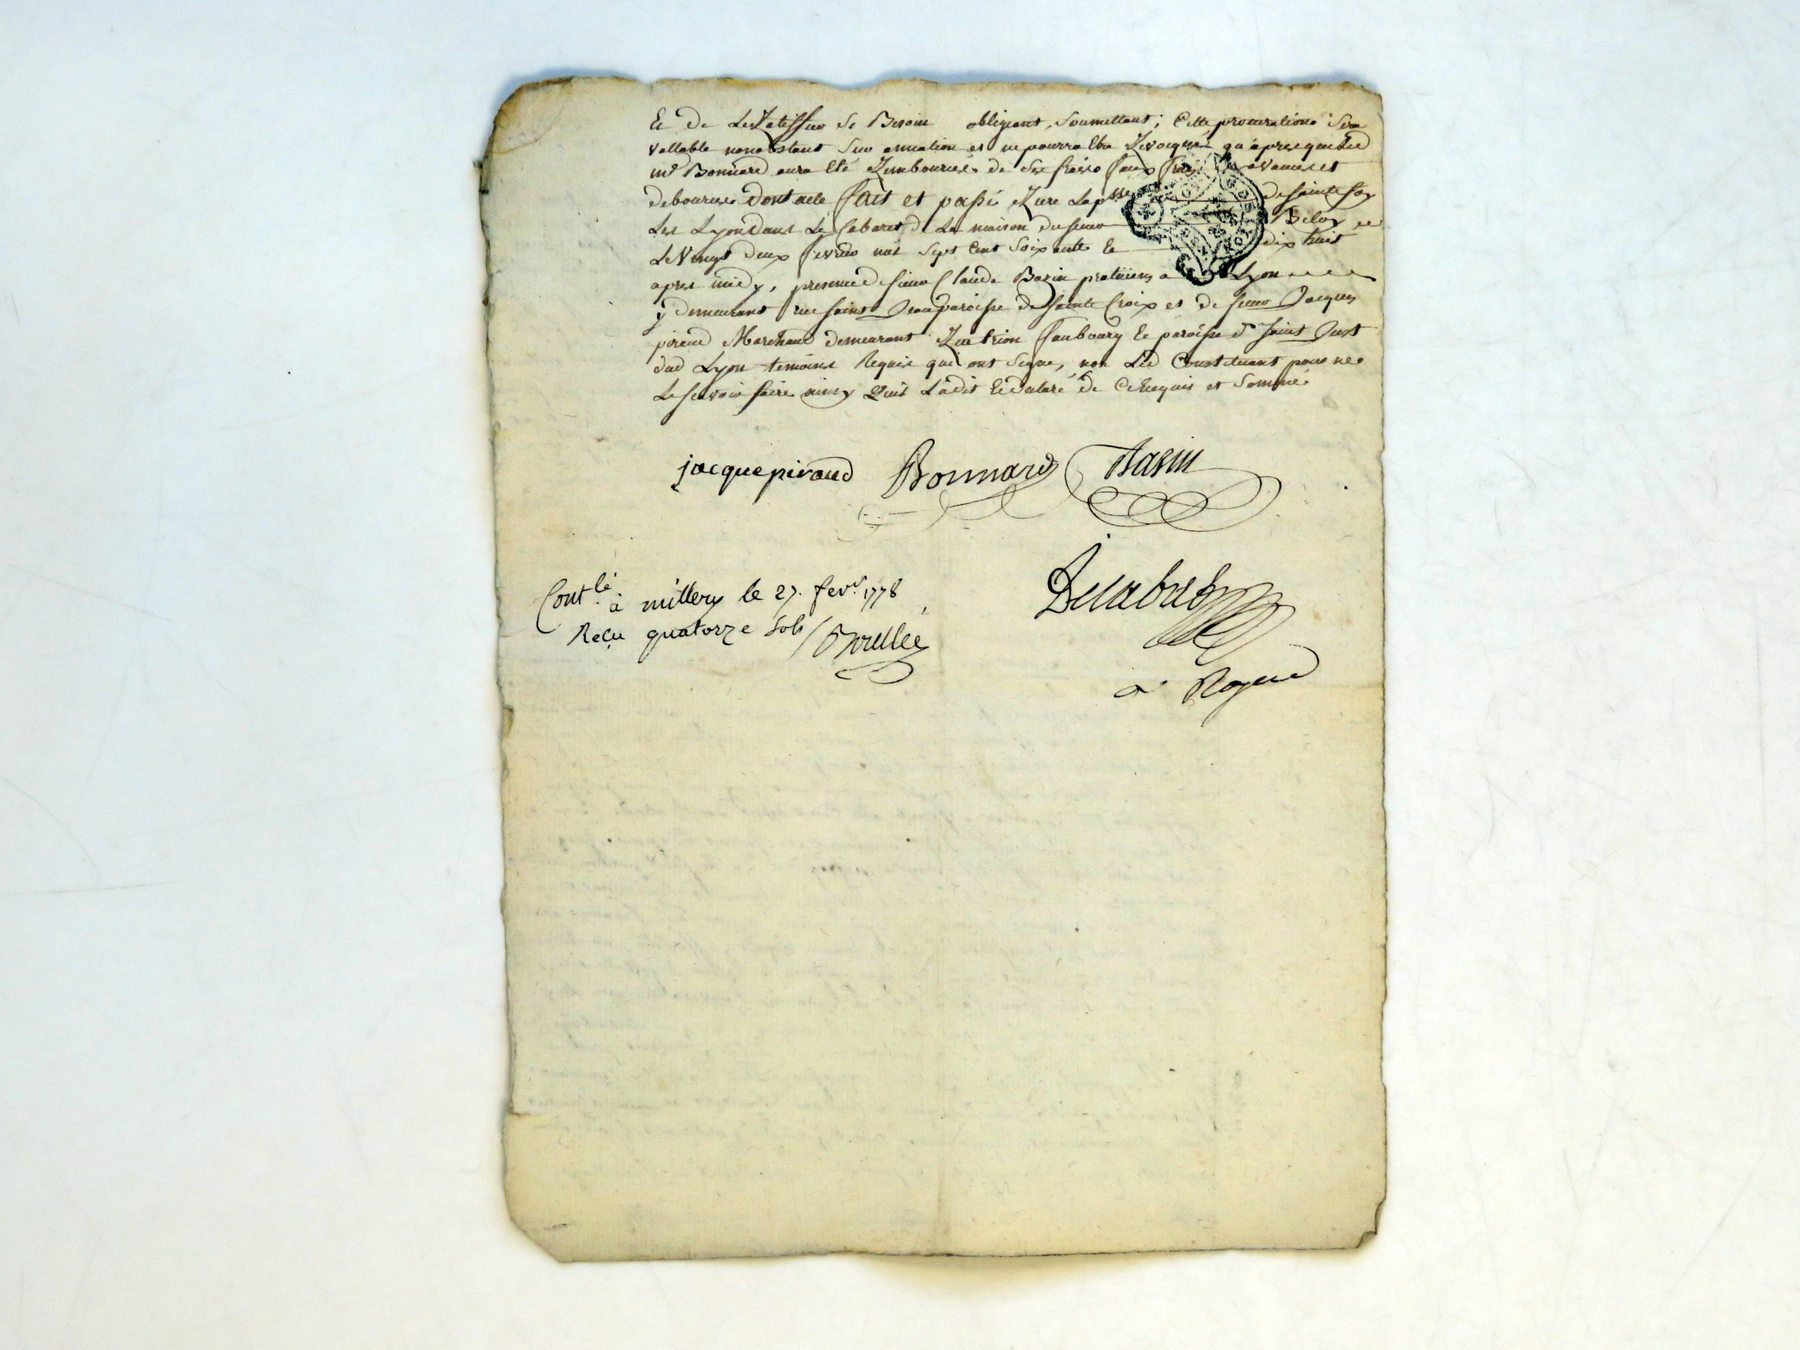 Et de Le Ratiffier Si Besoin obligeant, Soumettant; Cette procuration Sera
vallable nonobstant Sur annation et ne pourra Etre Revoquée qu'apres que Led
mr Bonnard aura Eté Rembourcés de Ses fraix faux frais avances et
debourcés dont acte fait et passé Riere La psse de Sainte foy
Les Lyon dans Le Cabaret d La maison du Sieur Biloy
Le Vingt deux fevrier mil Sept Cent Soixante Et dix huit
apres midy, presence de Sieur Claude Bazin praticien a Lyon
y demeurant rue Saint Jean paroisse de Sainte Croix et de Sieur Jacques
piraud Marchand demeurant Rue trion faubourg Et paroisse de Saint Just
dud Lyon temoins Requis qui ont Signé, non Led Constituant pour ne
Le Scavoir faire ainsy qu'il L'a dit Et declaré de Ce Requis et Sommé
jacque piraud Bonnard Basin
Contlé à millery le 27. fevr. 1778
Reçu quatorze sols
Nog Royal